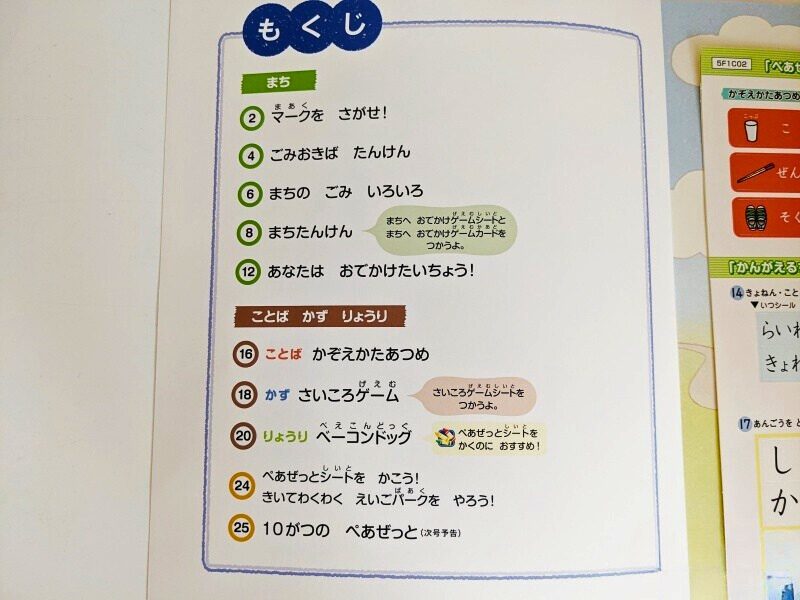 もくじ
まち
2 マークを さがせ！
4 ごみおきば たんけん
6 まちの ごみ いろいろ
8 まちたんけん
まちへ おでかけゲームシートと
まちへ おでかけゲームカードを
つかうよ。
12 あなたは おでかけたいちょう！
ことば かず りょうり
16 ことば かぞえかたあつめ
18 かず さいころゲーム
さいころゲームシートを
つかうよ。
20 りょうり ベーコンドッグ
ぺあぜっとシートを
かくのに おすすめ！
24 ぺあぜっとシートを かこう！
きいてわくわく えいごパークを やろう！
25 10がつの ぺあぜっと（次号予告）
5F1C02
かぞえかたあつめ
こ
ぜん
そく
「かんがえる
14 きょねん・こと
▼いつシール
17 あんごうを
し
か